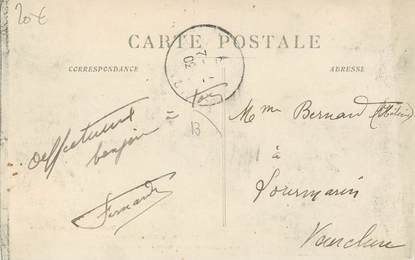 20 €
CARTE POSTALE
CORRESPONDANCE
ADRESSE
Affectueux
bonjour à
Fernand
B
Mme Bernard
à
Lourmarin
Vaucluse